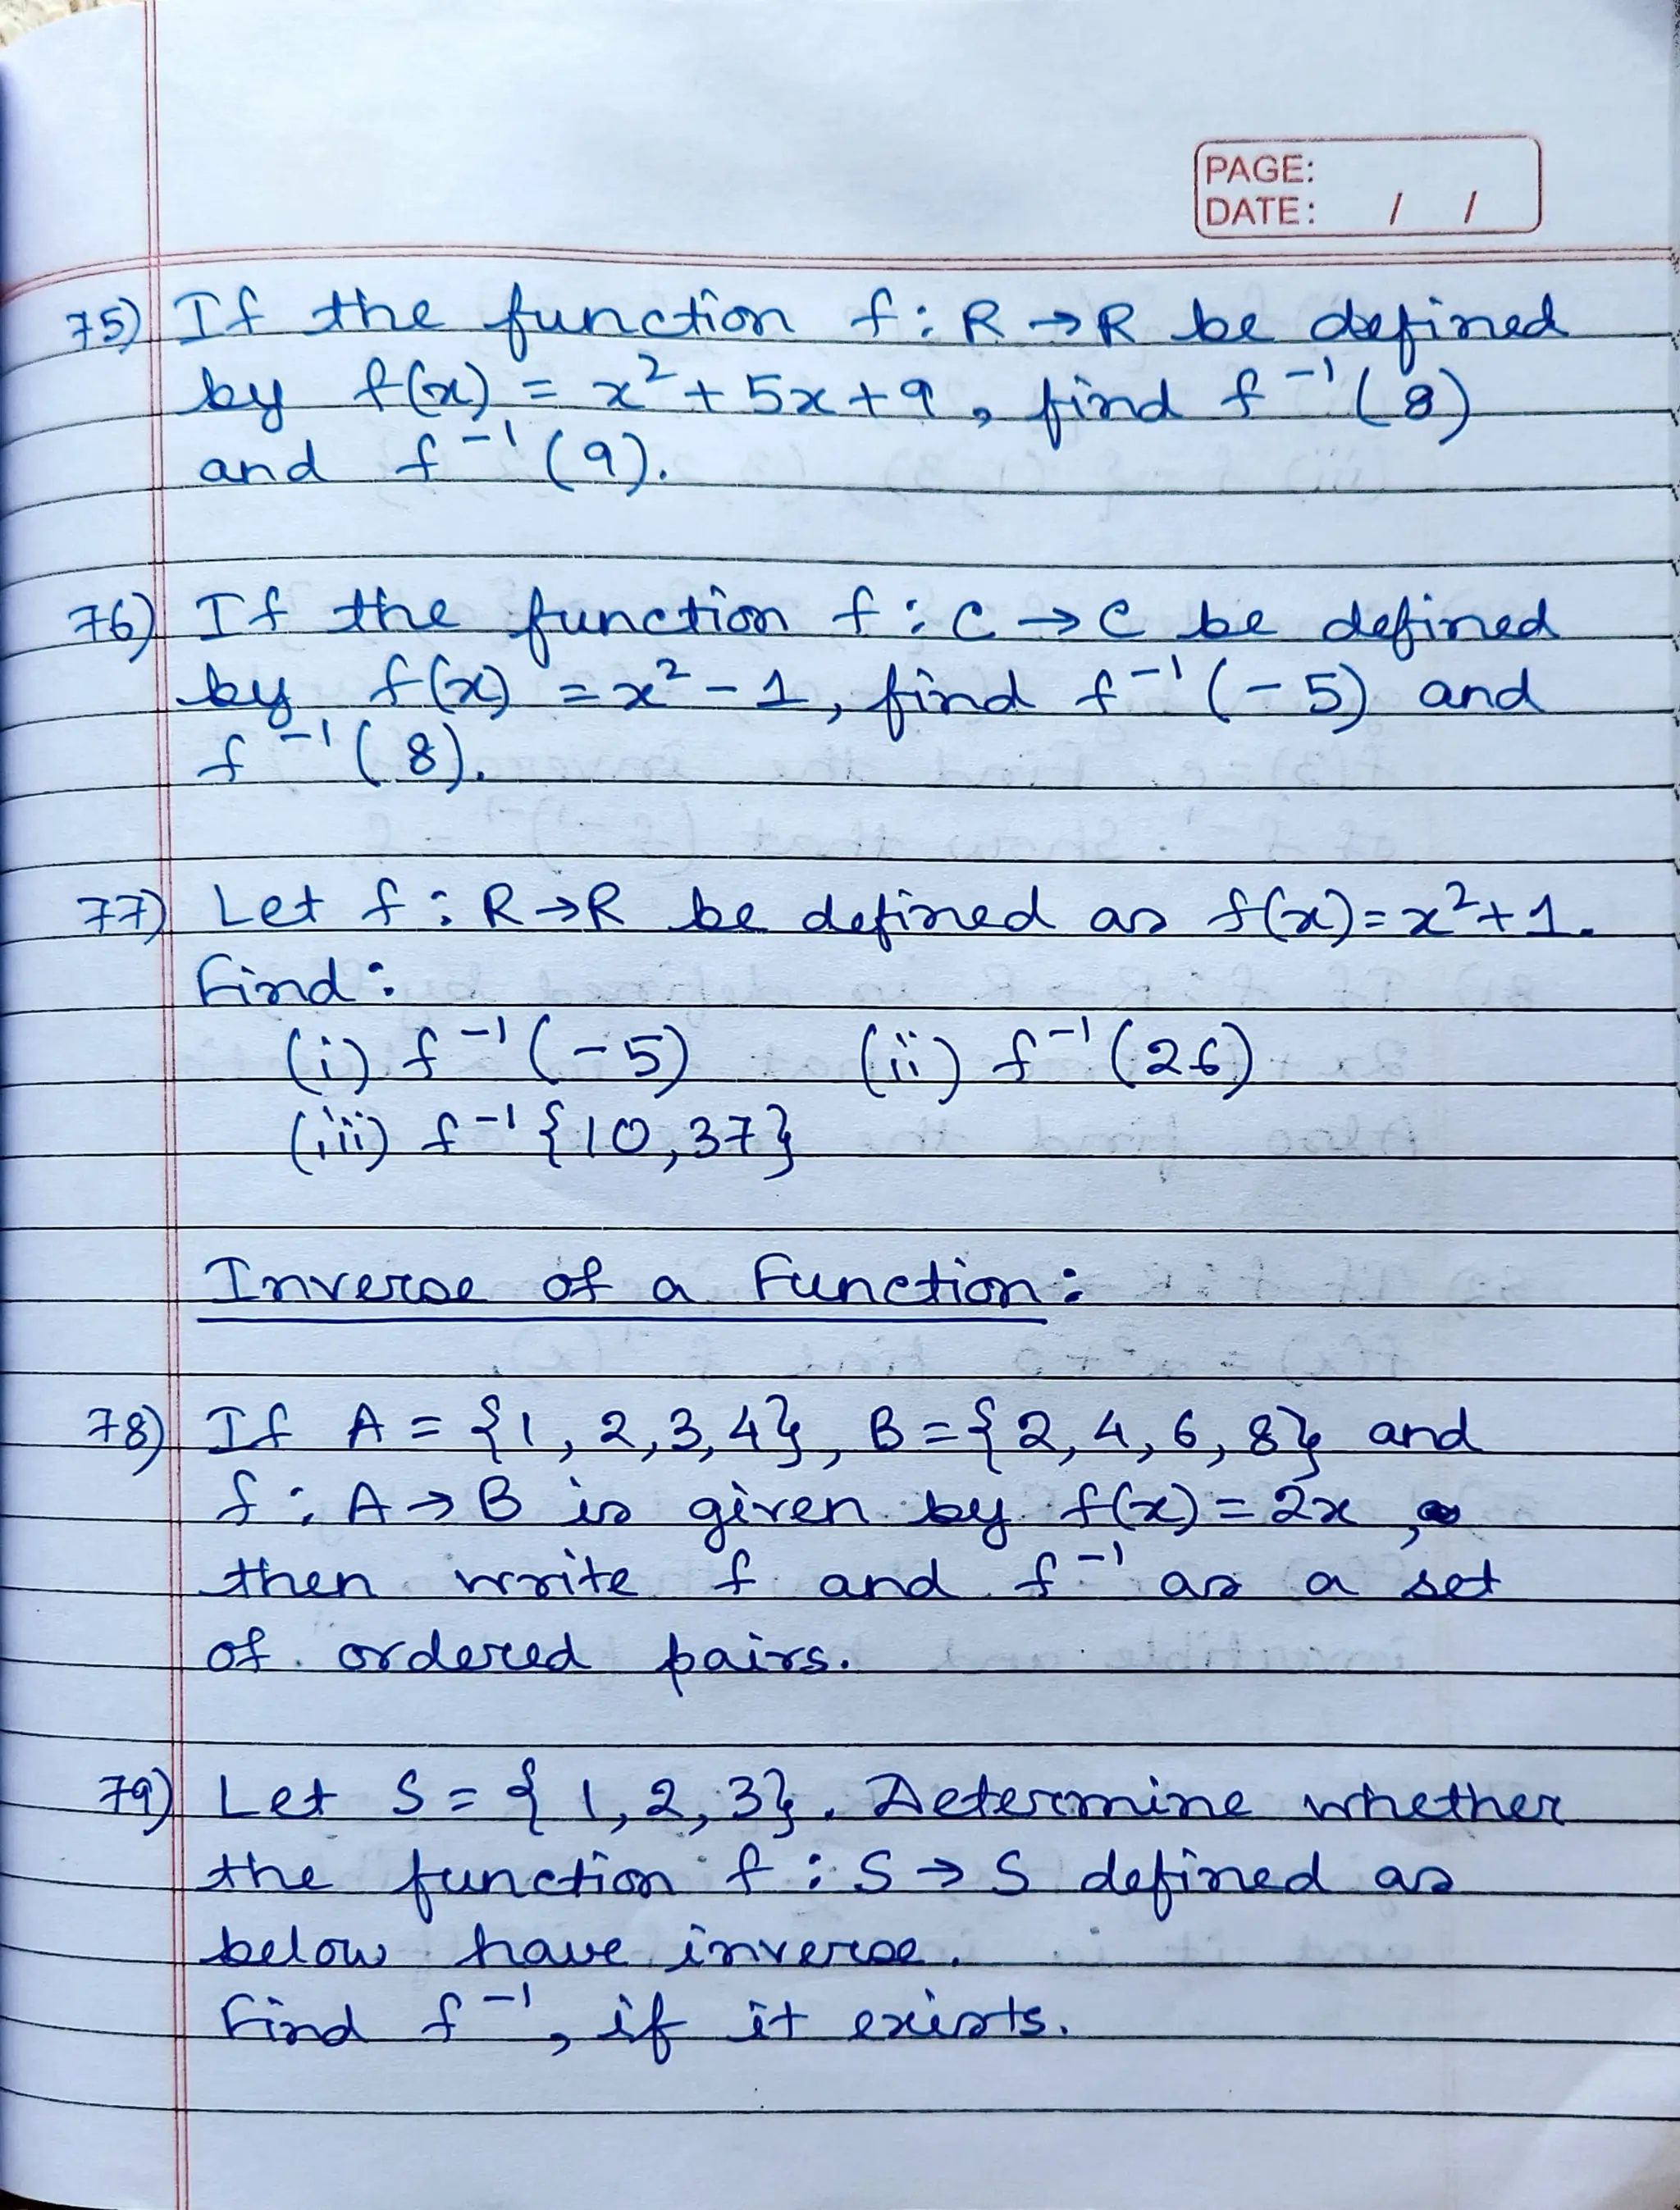 PAGE:
DATE: / /
75) If the function f : R → R be defined
by f(x) = x² + 5x + 9, find f⁻¹(8)
and f⁻¹(9).
76) If the function f : C → C be defined
by f(x) = x² - 1, find f⁻¹(-5) and
f⁻¹(8).
77) Let f : R → R be defined as f(x) = x² + 1.
Find:
(i) f⁻¹(-5) (ii) f⁻¹(26)
(iii) f⁻¹{10, 37}
Inverse of a Function:
78) If A = {1, 2, 3, 4}, B = {2, 4, 6, 8} and
f : A → B is given by f(x) = 2x,
then write f and f⁻¹ as a set
of ordered pairs.
79) Let S = {1, 2, 3}. Determine whether
the function f : S → S defined as
below have inverse.
Find f⁻¹, if it exists.